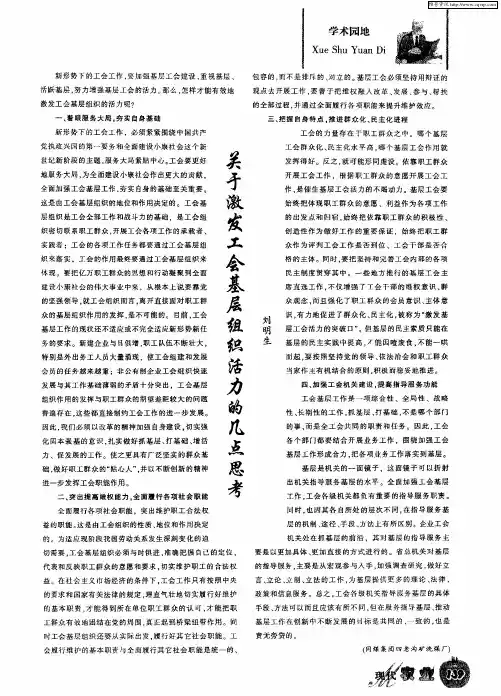 维普资讯 http://www.cqvip.com
学术园地
Xue Shu Yuan Di
关于激发工会基层组织活力的几点思考
刘明生
新形势下的工会工作,要加强基层工会建设,重视基层、
活跃基层,努力增强基层工会的活力。那么,怎样才能有效地
激发工会基层组织的活力呢?
一、着眼服务大局,夯实自身基础
新形势下的工会工作,必须紧紧围绕中国共产
党执政兴国的第一要务和全面建设小康社会这个新
世纪新阶段的主题,服务大局紧贴中心。工会要更好
地服务大局,为全面建设小康社会作出更大的贡献,
全面加强工会基层工作,夯实自身的基础至关重要。
这是由工会基层组织的地位和作用决定的。工会基
层组织是工会全部工作和战斗力的基础,是工会组
织密切联系职工群众,开展工会各项工作的承载者、
实践者;工会的各项工作任务都要通过工会基层组
织来落实,工会的作用最终要通过工会基层组织来
体现。要把亿万职工群众的思想和行动凝聚到全面
建设小康社会的伟大事业中来,从根本上说要靠党
的坚强领导,就工会组织而言,离开直接面对职工群
众的基层组织作用的发挥,是不可能的。目前,工会
基层工作的现状还不适应或不完全适应新形势新任
务的要求。新建企业与日俱增,职工队伍不断壮大,
特别是外出务工人员大量涌现,使工会组建和发展
会员的任务越来越重;非公有制企业工会组织快速
发展与其工作基础薄弱的矛盾十分突出,工会基层
组织作用的发挥与职工群众的期望差距较大的问题
普遍存在,这些都直接制约工会工作的进一步发展。
因此,我们必须以改革的精神加强自身建设,切实强
化固本强基的意识,扎实做好抓基层、打基础、增活
力、促发展的工作。使之更具有广泛坚实的群众基
础,做好职工群众的“贴心人”,并以不断创新的精神
进一步发挥工会职能作用。
二、突出提高维权能力,全面履行各项社会职能
全面履行各项社会职能。突出维护职工合法权
益的职能,这是由工会组织的性质、地位和作用决定
的。为适应现阶段我国劳动关系发生深刻变化的迫
切需要,工会基层组织必须与时俱进,准确把握自己的定位,
代表和反映职工群众的意愿和要求,切实维护职工的合法权
益。在社会主义市场经济的条件下,工会工作只有按照中央
的要求和国家有关法律的规定,理直气壮地切实履行好维护
的基本职责,才能得到所在单位职工群众的认可,才能把职
工群众有效地团结在党的周围,真正起到桥梁纽带作用。同
时工会基层组织还要从实际出发,履行好其它社会职能。工
会履行维护的基本职责与全面履行其它社会职能是统一的、
包容的,而不是排斥的、对立的。基层工会必须坚持用辩证的
观点去开展工作,要善于把维权融入改革、发展、参与、帮扶
的全部过程,并通过全面履行各项职能来提升维护效应。
三、把握自身特点,推进群众化、民主化进程
工会的力量存在于职工群众之中。哪个基层
工会群众化、民主化水平高,哪个基层工会作用就
发挥得好。反之,就可能形同虚设。依靠职工群众
开展工会工作,根据职工群众的意愿开展工会工
作,是催生基层工会活力的不竭动力。基层工会要
始终把体现职工群众的意愿、利益作为各项工作
的出发点和归宿,始终把依靠职工群众的积极性、
创造性作为做好工作的重要保证,始终把职工群
众作为评判工会工作是否到位、工会干部是否合
格的主体。同时,要把坚持和完善工会内部的各项
民主制度贯穿其中。一些地方推行的基层工会主
席直选工作,不仅增强了工会干部的维权意识、群
众观念,而且强化了职工群众的会员意识、主体意
识,有力地促进了群众化、民主化,被称为“激发基
层工会活力的突破口”。但基层的民主素质只能在
基层的民主实践中提高,不能因噎废食,不能一哄
而起,要按照坚持党的领导、依法治会和职工群众
当家作主有机结合的原则,积极而稳妥地推进。
四、加强工会机关建设,提高指导服务功能
工会基层工作是一项综合性、全局性、战略
性、长期性的工作,抓基层、打基础,不是哪个部门
的事,而是全工会共同的职责和任务。因此,工会
各个部门都要结合开展业务工作,围绕加强工会
基层工作形成合力,把各项业务工作落实到基层。
基层是机关的一面镜子,这面镜子可以折射
出机关指导服务基层的水平。全面加强工会基层
工作,工会各级机关都负有重要的指导服务职责。
同时,也因其各自所处的层次不同,在指导服务基
层的机制、途径、手段、方法上有所区别。企业工会
机关处在抓基层的前沿,其对基层的指导服务主
要是以更加具体、更加直接的方式进行的。省总机关对基层
的指导服务,主要是从宏观参与入手,加强调查研究,做好立
言、立论、立制、立法的工作,为基层提供更多的理论、法律、
政策和信息服务。总之,工会各级机关指导服务基层的具体
手段、方法可以而且应该有所不同,但在服务指导基层、推动
基层工作在创新中不断发展的目标是共同的、一致的,也是
责无旁贷的。
(同煤集团四老沟矿洗煤厂)
现代